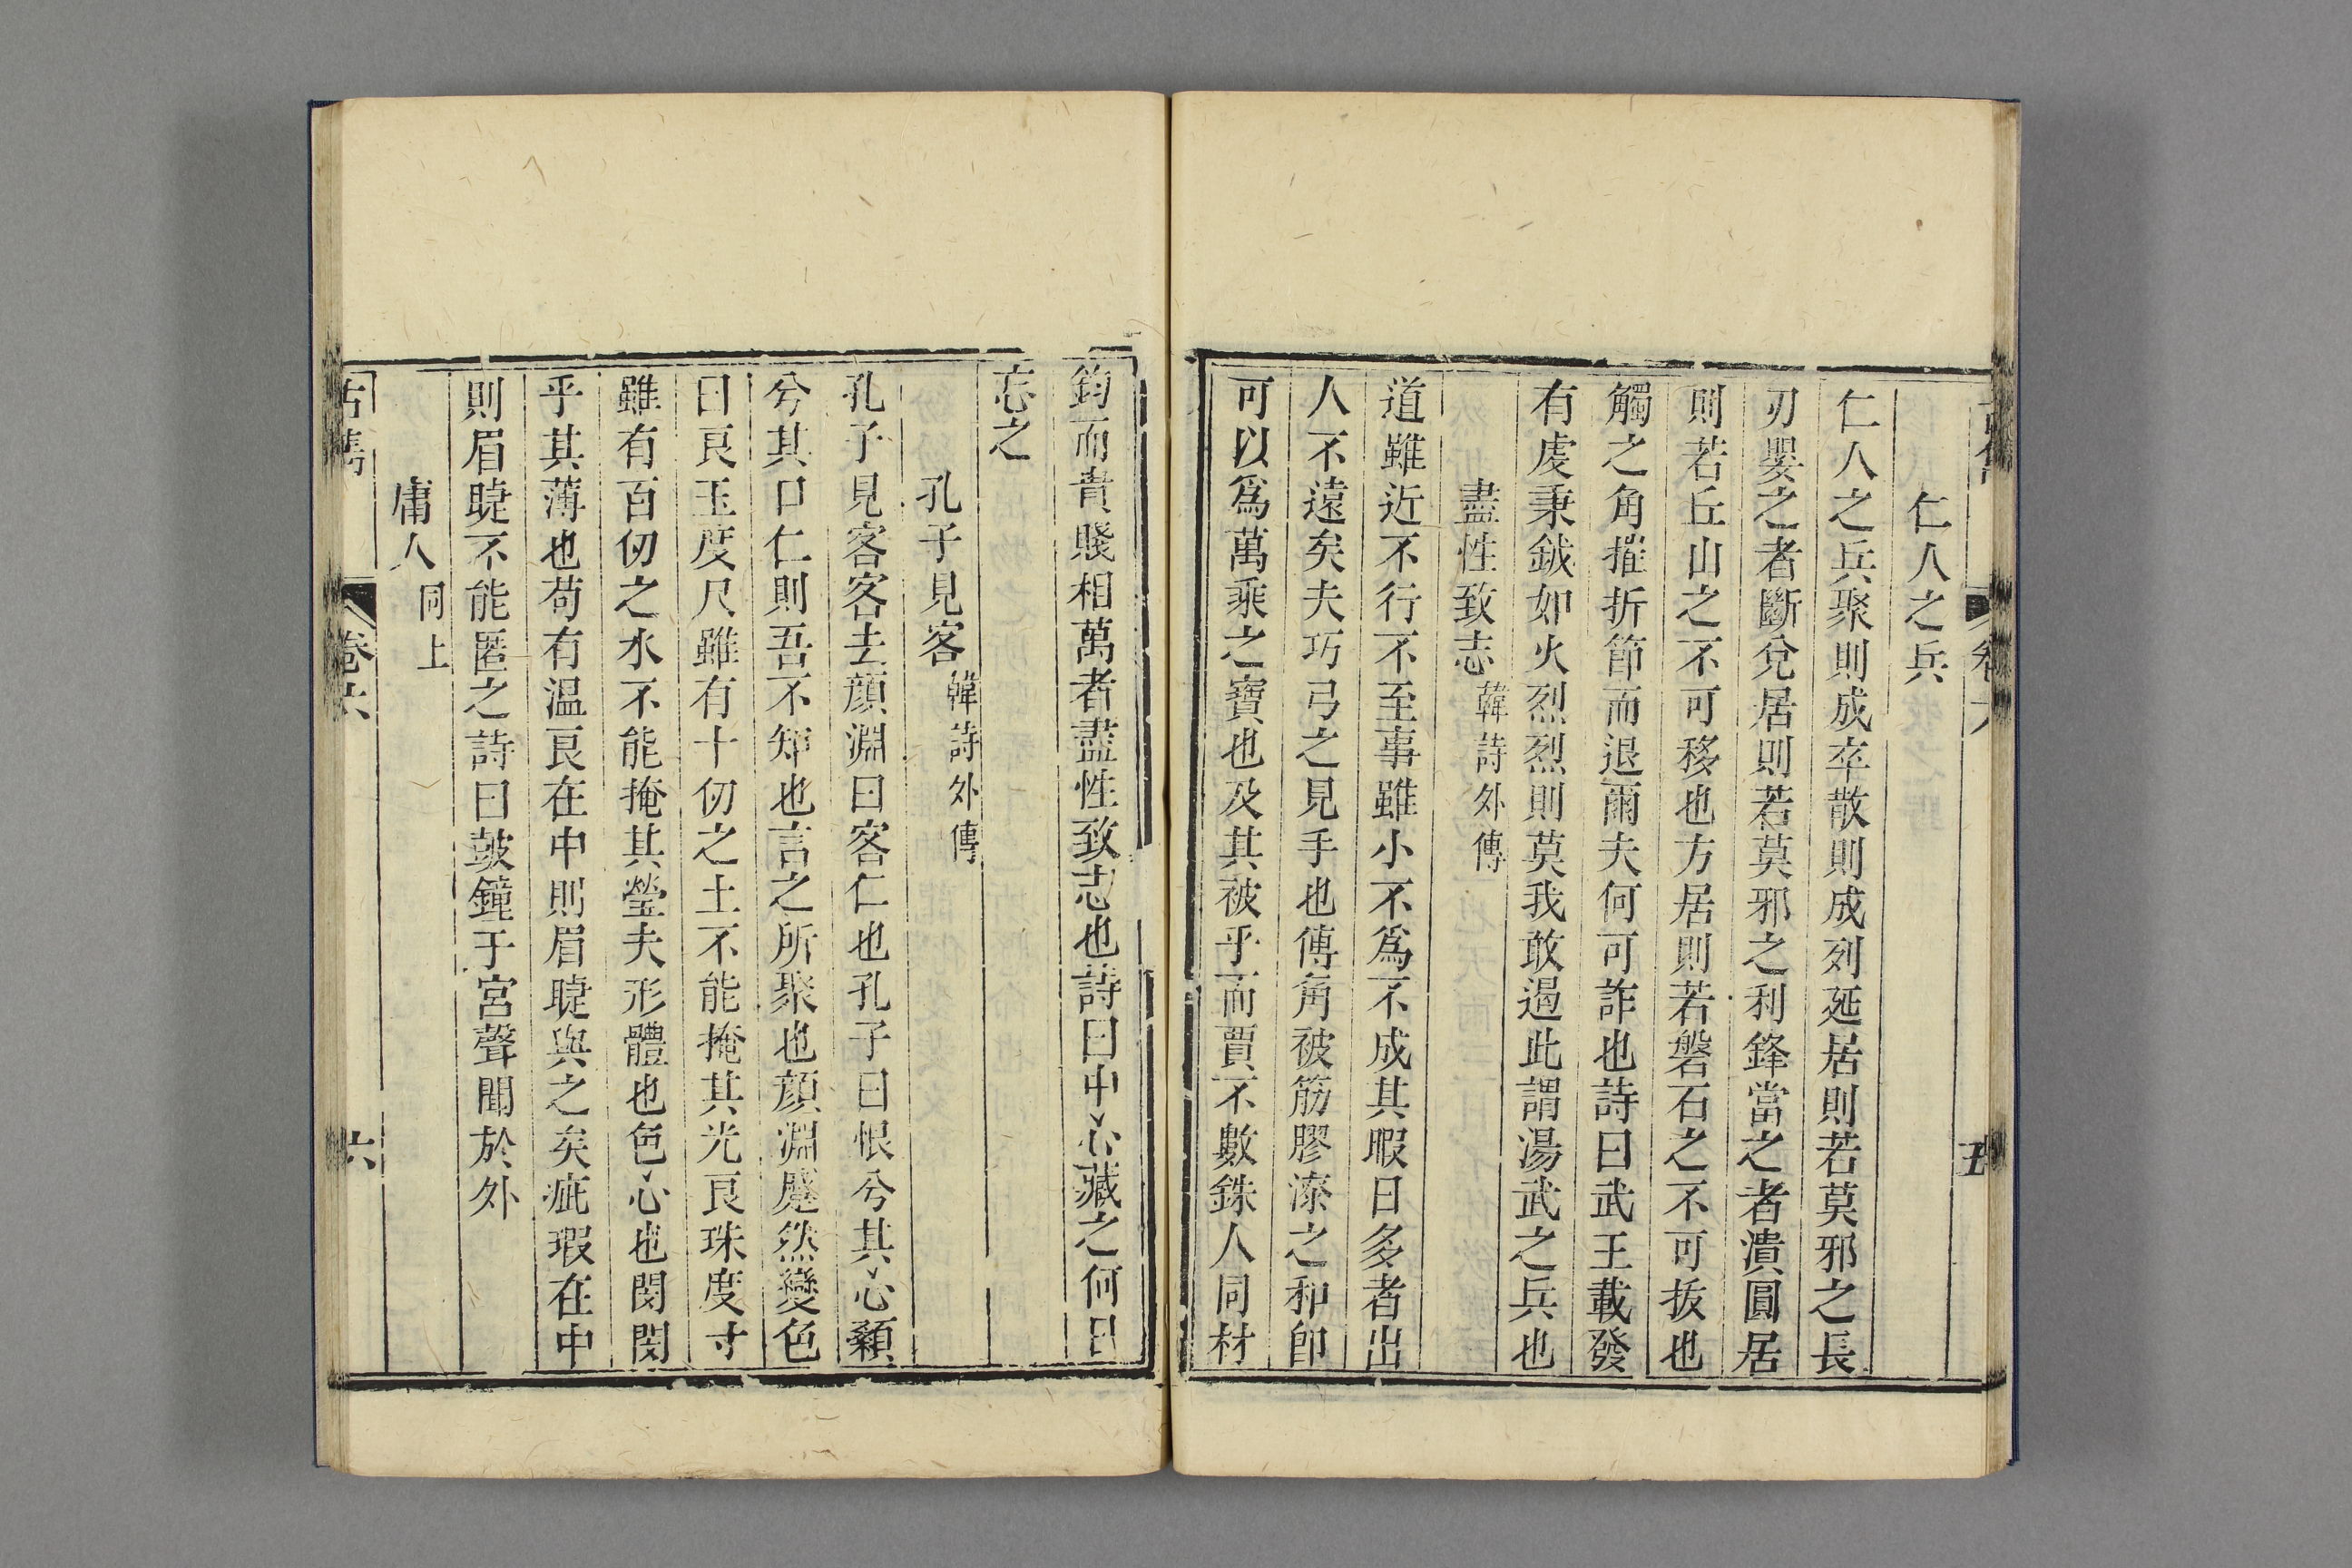 仁人之兵
仁人之兵聚則成卒散則成列延居則若莫邪之長
刃嬰之者斷兌居則若莫邪之利鋒當之者潰圓居
則若丘山之不可移也方居則若磐石之不可拔也
觸之角摧折節而退爾夫何可詐也詩曰武王載發
有虔秉鉞如火烈烈則莫我敢遏此謂湯武之兵也
盡性致志韓詩外傳
道雖近不行不至事雖小不爲不成其暇日多者出
人不遠矣夫巧弓之見手也傅角被筋膠漆之和即
可以爲萬乘之寶也及其被乎而賈不數銖人同材
鈞而貴賤相萬者盡性致志也詩曰中心藏之何日
忘之
孔子見客韓詩外傳
孔子見客客去顏淵曰客仁也孔子曰恨兮其心顙
兮其口仁則吾不知也言之所聚也顏淵蹙然變色
曰良玉度尺雖有十仞之土不能掩其光良珠度寸
雖有百仞之水不能掩其瑩夫形體也色心也閔閔
乎其薄也苟有温良在中則眉睫與之矣疵瑕在中
則眉睫不能匿之詩曰鼓鐘于宮聲聞於外
庸人同上
卷六
六